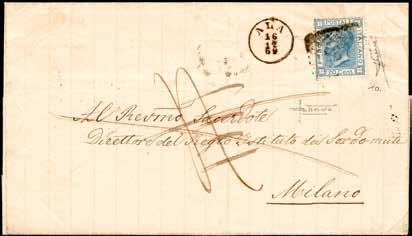 ALA
16
12
69
POSTALE
ITALIANO
20 Cent.
Al Resmo Sacerdote
Direttore del Regio Istituto dei Sordo-muti
Milano